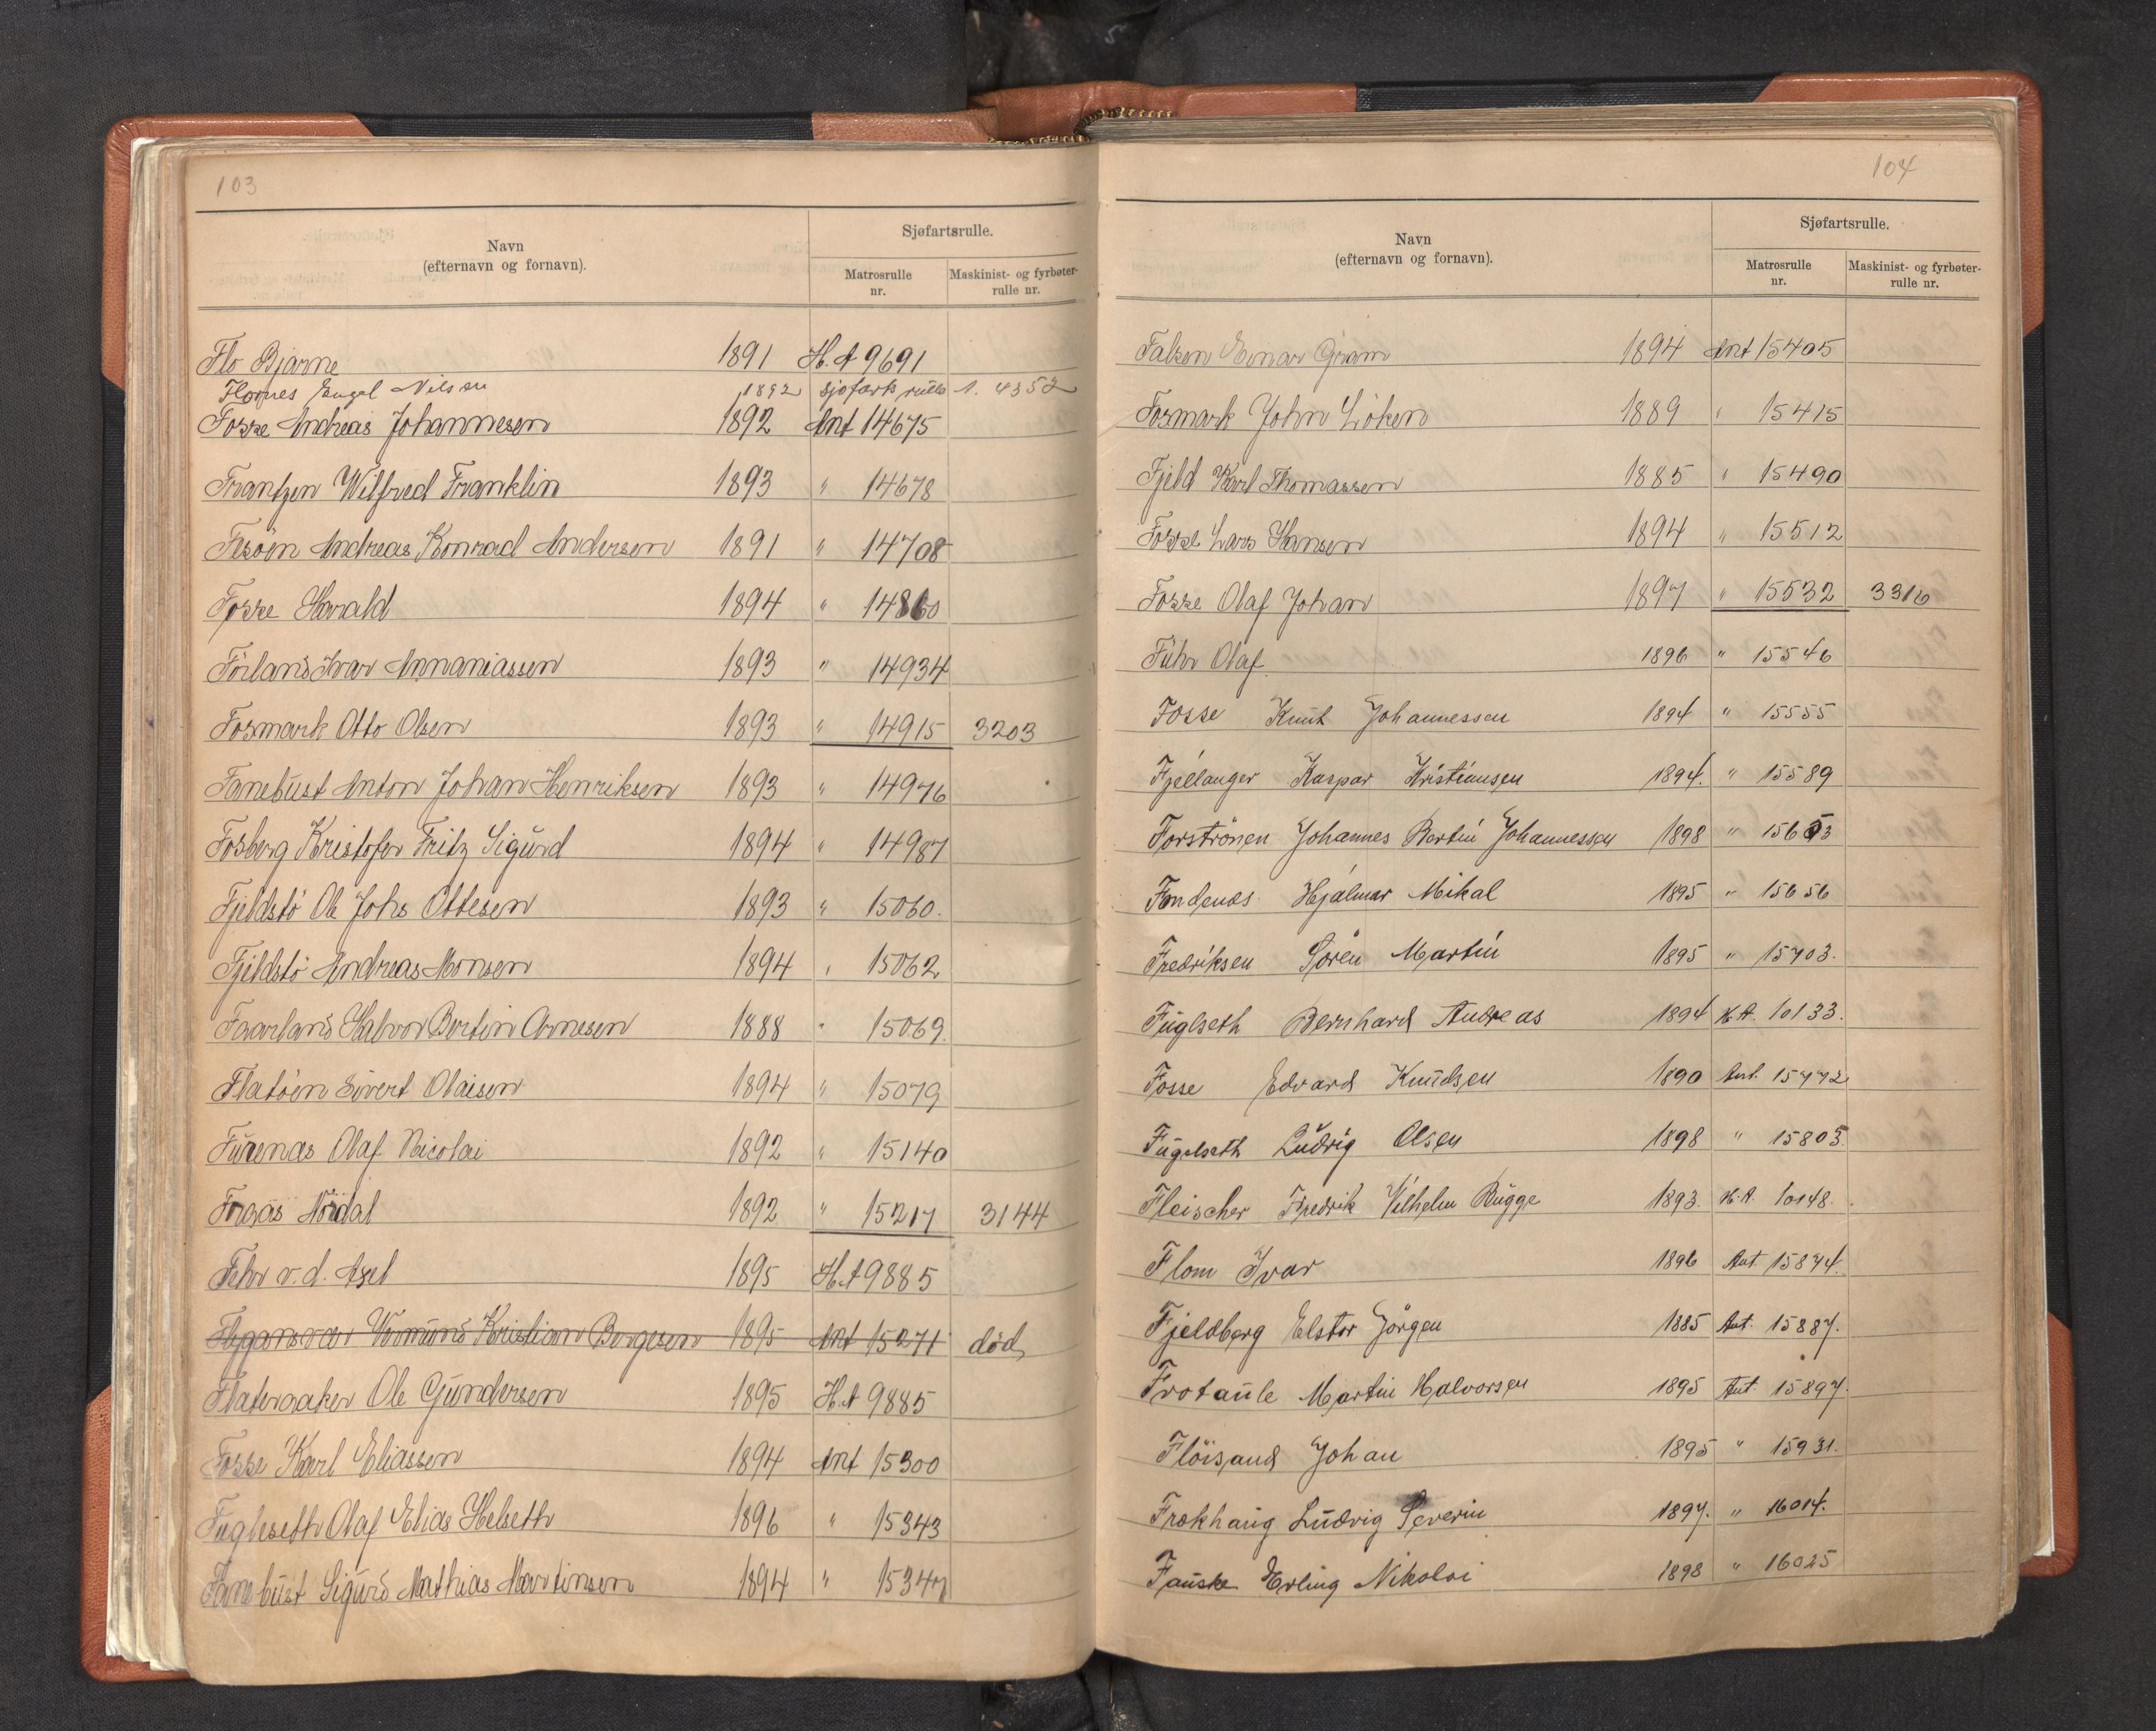 103
Sjøfartsrulle.
Navn
(efternavn og fornavn).
Matrosrulle
nr.
Maskinist- og fyrbøter-
rulle nr.
Flo Bjarne 1891 H. A 9691
Flornes Engel Nilsen 1892 sjøfarts rulle 1. 4352
Fosse Andreas Johannesen 1892 Ant 14675
Frantzen Wilfred Franklin 1893 " 14678
Fesøen Andreas Konrad Andersen 1891 " 14708
Fosse Harald 1894 " 14860
Förland Ivar Annaniassen 1893 " 14934
Fosmark Otto Olsen 1893 " 14915 3203
Fanebust Anton Johan Henriksen 1893 " 14976
Fosberg Kristofer Fritz Sigurd 1894 " 14987
Fjeldstö Ole Johs Ottesen 1893 " 15060.
Fjeldstö Andreas Monsen 1894 " 15062
Faarland Halvor Bertin Arnesen 1888 " 15069.
Flatöen Sivert Olaisen 1894 " 15079
Furenas Olaf Nicolai 1892 " 15140
Nordal 1892 " 15217 3144
Fehr v. d. Axel 1895 H. A 9885
Vermund Kristian Borgesen 1895 Ant 15271 död
Flateraaker Ole Gundersen 1895 H. A 9885
Fosse Karl Eliassen 1894 Ant 15300
Fuglseth Olaf Elias Helseth 1896 " 15343
Fanebust Sigurd Mathias Martinsen 1894 " 15347
104
Sjøfartsrulle.
Navn
(efternavn og fornavn).
Matrosrulle
nr.
Maskinist- og fyrbøter-
rulle nr.
Falsen Einar Gram 1894 Ant 15405
Fosmark John Löken 1889 " 15415
Fjeld Karl Thomassen 1885 " 15490
Fosse Lars Hansen 1894 " 15512
Fosse Olaf Johan 1897 " 15532 3316
Führ Olaf 1896 " 15546
Fosse Knut Johannessen 1894 " 15555
Fjellanger Kaspar Kristiansen 1894. " 15589
Forströnen Johannes Bertin Johannessen 1898 " 15653
Fondenes Hjalmar Mikal 1895 " 15656
Fredriksen Sören Martin 1895 " 15703.
Fuglseth Bernhard Andreas 1894 H. A. 10133.
Fosse Edvard Knudsen 1890 Ant. 15772
Fugelseth Ludvig Olsen 1898 " 15805
Fleischer Fredrik Vilhelm Bugge 1893. H. A. 10148.
Flom Ivar 1896 Ant. 15874.
Fjeldberg Elstor Jörgen 1885 Ant. 15887.
Frotaule Martin Halvorsen 1895 Ant. 15897.
Flöisand Johan 1895 " 15931.
Frokhaug Ludvig Severin 1897. " 16014.
Fauske Erling Nikolai 1898 " 16025